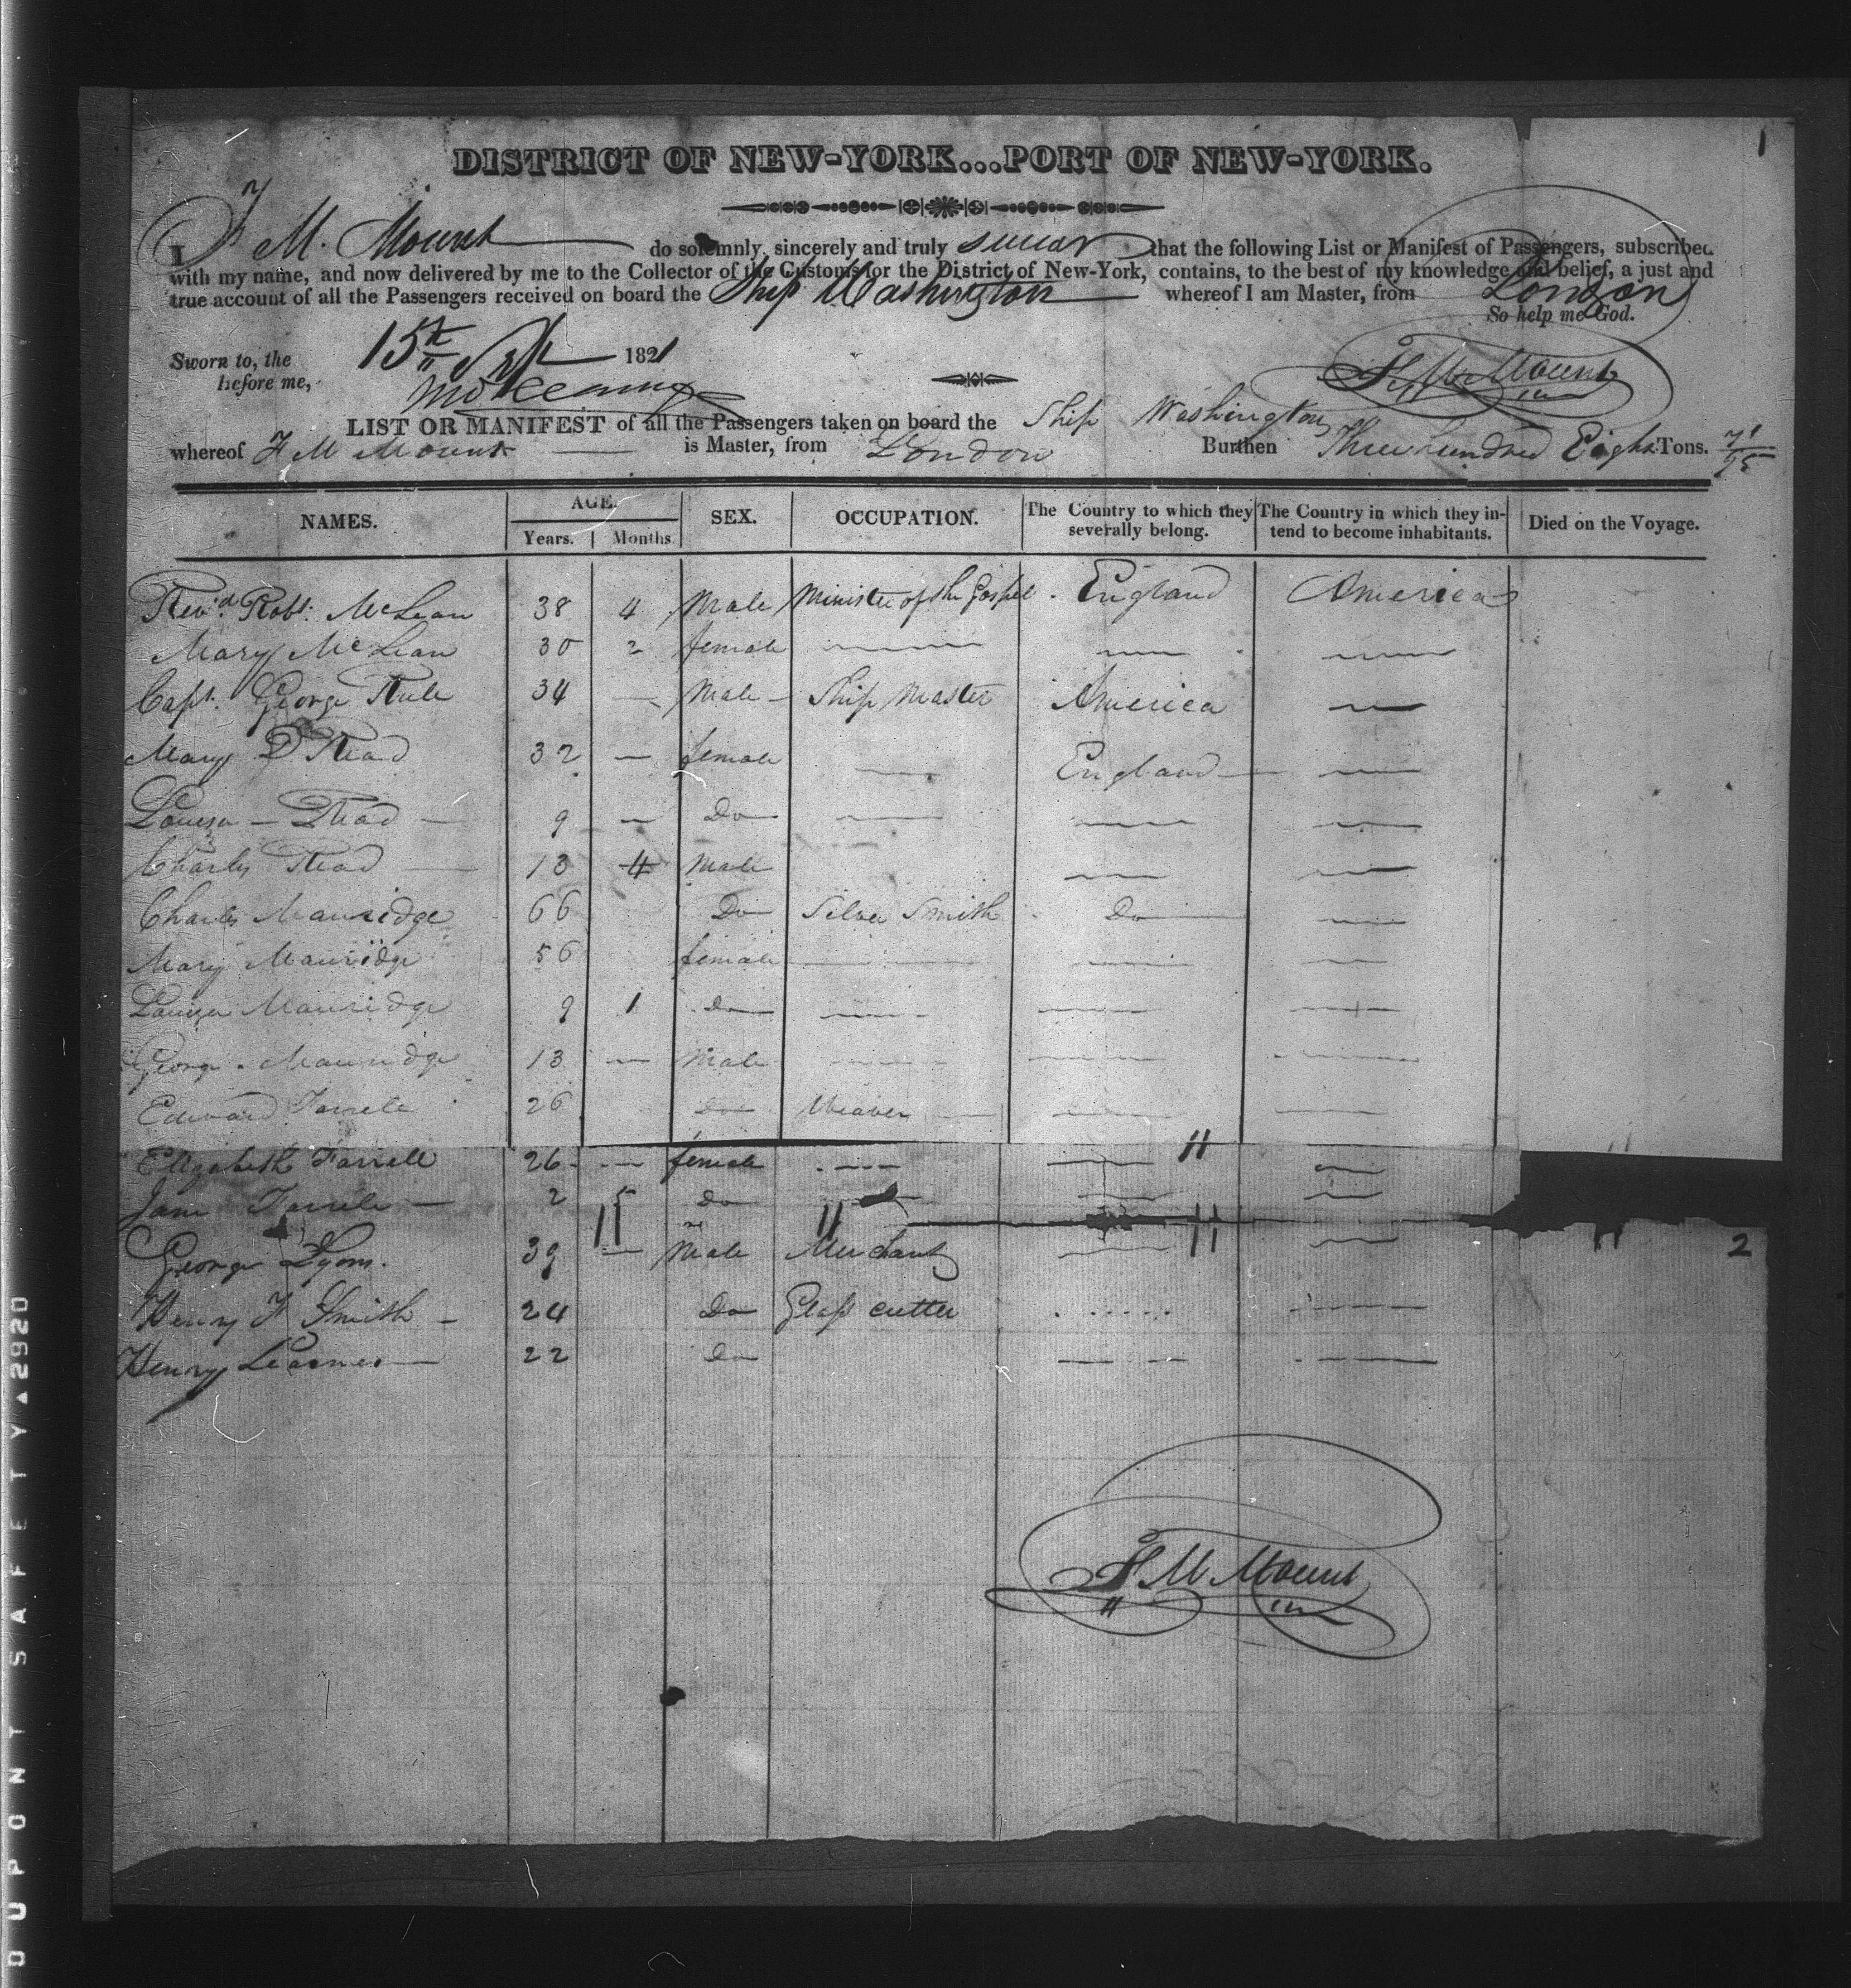 1
DISTRICT OF NEW-YORK...PORT OF NEW-YORK.
I F M. Mount do solemnly, sincerely and truly swear that the following List or Manifest of Passengers, subscribed
with my name, and now delivered by me to the Collector of the Customs for the District of New-York, contains, to the best of my knowledge and belief, a just and
true account of all the Passengers received on board the Ship Washington whereof I am Master, from London
So help me God.
Sworn to, the 15th 1821
before me,
F M Mount
LIST OR MANIFEST of all the Passengers taken on board the Ship Washington
whereof F M Mount is Master, from London Burthen Three hundred Eight Tons. 71/95
NAMES. AGE. SEX. OCCUPATION. The Country to which they severally belong. The Country in which they intend to become inhabitants. Died on the Voyage.
Years. Months.
Rev.d Robt. McLean 38 4 Male Minister of the Gospel England America
Mary McLean 30 2 female
Capt. George Rule 34 — Male Ship Master America —
Mary D Read 32 — female — England —
Louisa Read 9 — Do — — —
Charles Read 13 4 Male — —
Charles Mauridge 66 Do Silver Smith Do —
Mary Mauridge 56 female — — —
Louisa Mauridge 9 1 Do — — —
George Mauridge 13 — Male — — —
Edward Farrele 26 Do Weaver — —
Elizabeth Farrell 26 — female — — —
Jane Farrele 2 5 Do — — —
George Lyons. 39 — Male Merchant — —
2
Henry F Smith 24 Do Glass cutter — —
Henry 22 Do — —
F M Mount
DUPONT SAFETY▲2920